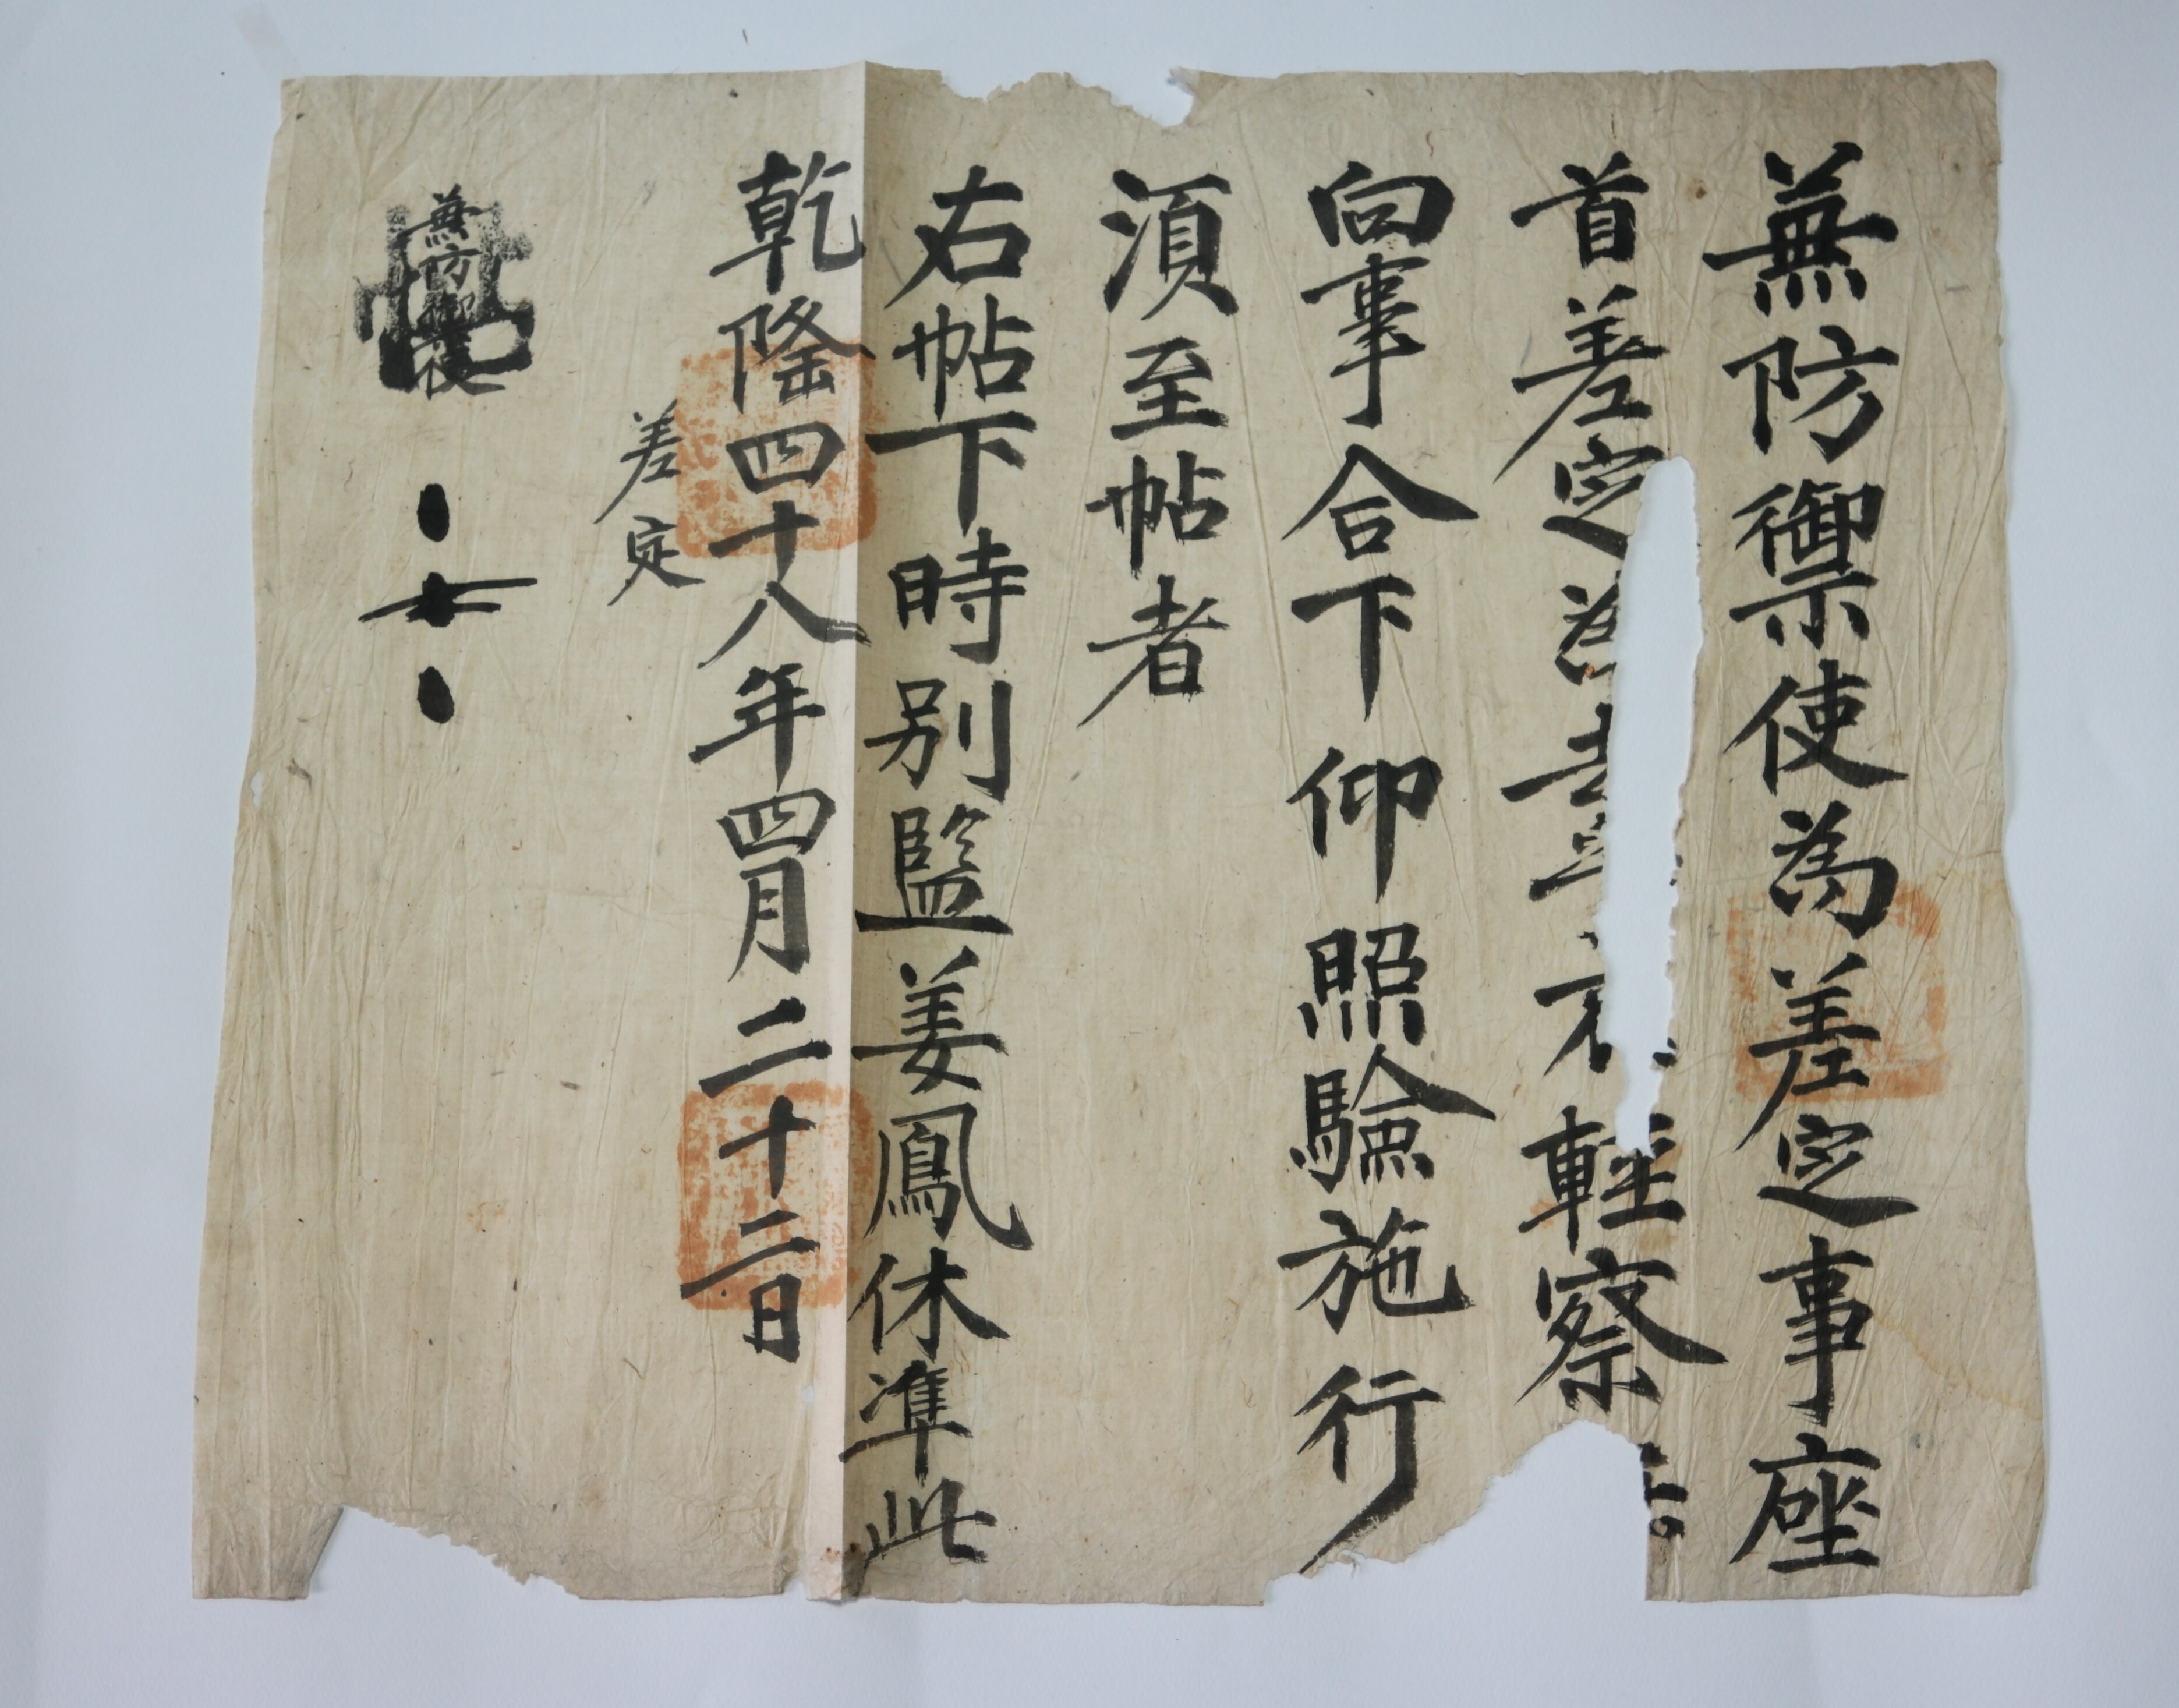 無防禦使為差定事座
首差定為 輕察
向事合下仰照驗施行
湏至帖者
右帖下時别監姜鳳休準此
乾隆四十八年四月二十二日
差定
無防禦使